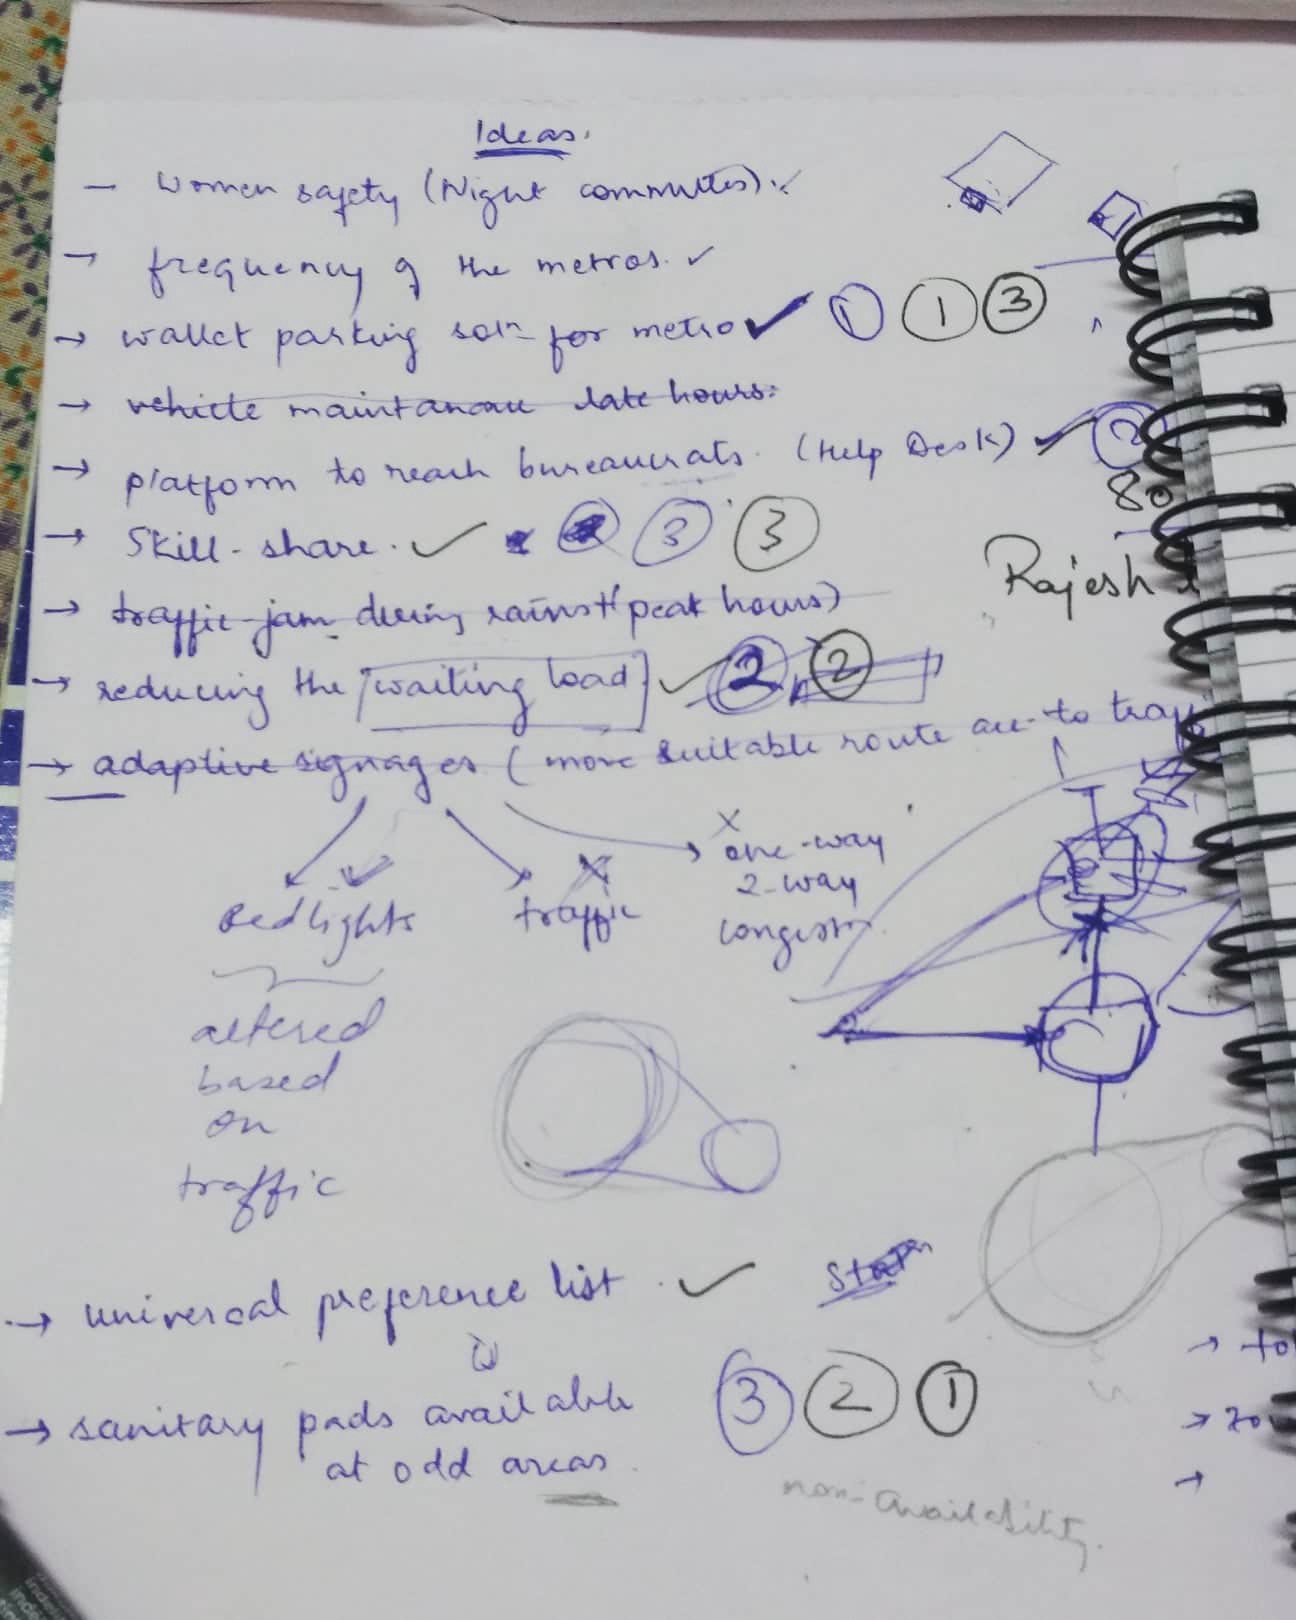 Ideas.
- Women safety (Night commuttes). ✓
→ frequency of the metros. ✓
→ wallet parking soln for metro ✓ 1 1 3
→ vehicle maintanance late hours.
→ platform to reach bureaucrats. (Help Desk) ✓ 2
80
→ Skill-share. ✓ 3 3
Rajesh
→ traffic jam during rains (peak hours)
→ reducing the waiting load ✓ 2 2
→ adaptive signages (more suitable route acc. to
✓ x x
Redlights traffic one-way
2-way
altered
based
on
traffic
→ universal preference list. ✓
→ sanitary pads available 3 2 1
at odd areas.
non-availability.
→ to
→
→